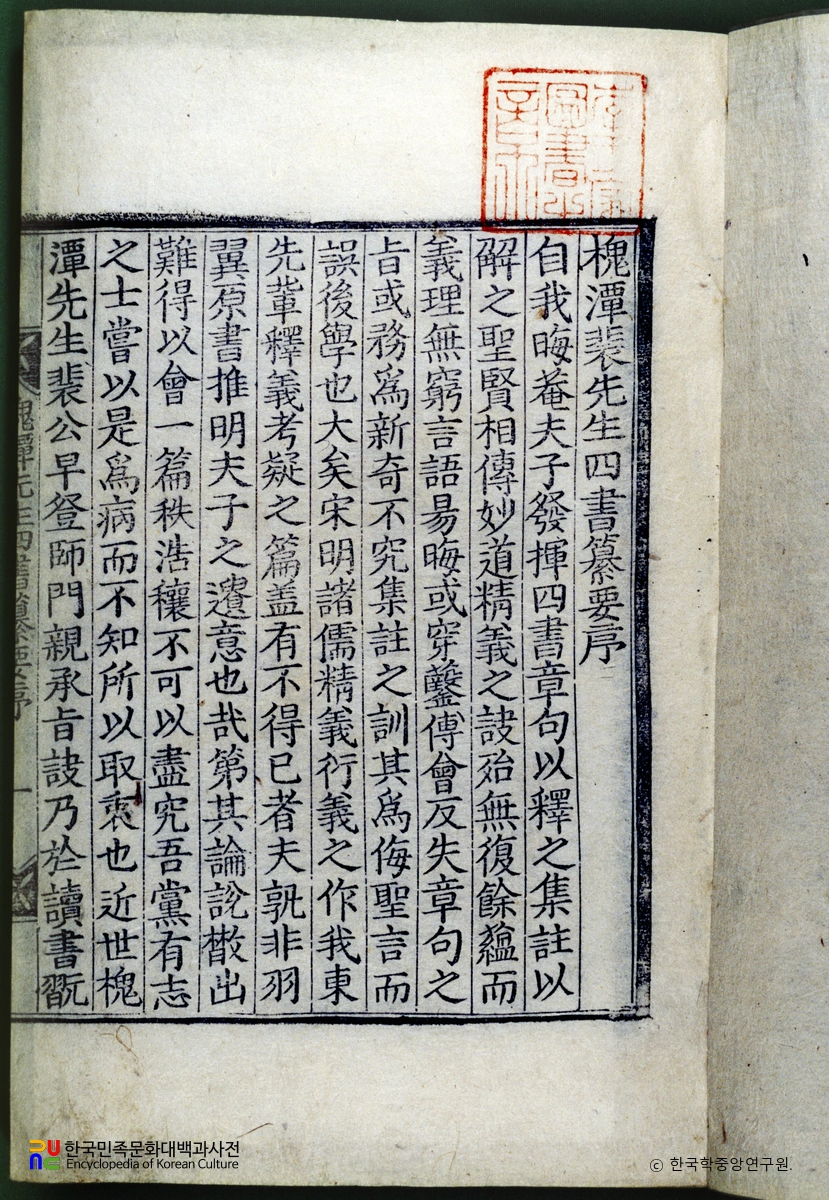 槐潭裵先生四書纂要序
自我晦菴夫子發揮四書章句以釋之集註以
解之聖賢相傳妙道精義之訣殆無復餘蘊而
義理無窮言語易晦或穿鑿傅會反失章句之
旨或務爲新奇不究集註之訓其爲侮聖言而
誤後學也大矣宋明諸儒精義衍義之作我東
先輩釋義考疑之篇盖有不得已者夫孰非羽
翼原書推明夫子之遺意也哉第其論說散出
難得以會一篇秩浩穰不可以盡究吾黨有志
之士嘗以是爲病而不知所以取衷也近世槐
潭先生裵公早登師門親承旨訣乃於讀書翫
槐潭先生四書纂要序 一
圖書
한국민족문화대백과사전
Encyclopedia of Korean Culture
ⓒ 한국학중앙연구원.